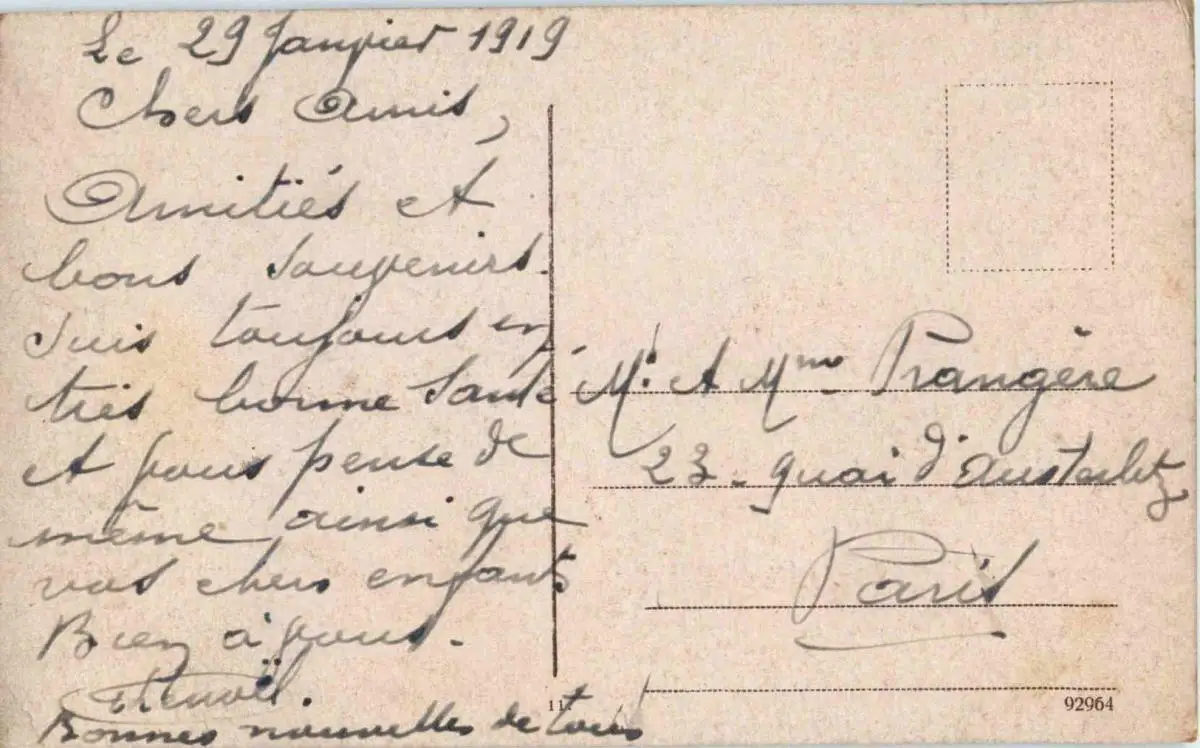 Le 29 Janvier 1919
Chers Amis,
Amitiés et
bons souvenirs.
Suis toujours en
très bonne Santé
et vous pense de
même ainsi que
vos chers enfants
Bien à vous.
Bonnes nouvelles de tous
Mr. et Mme Prangère
23 - quai d'Austerlitz
Paris
92964